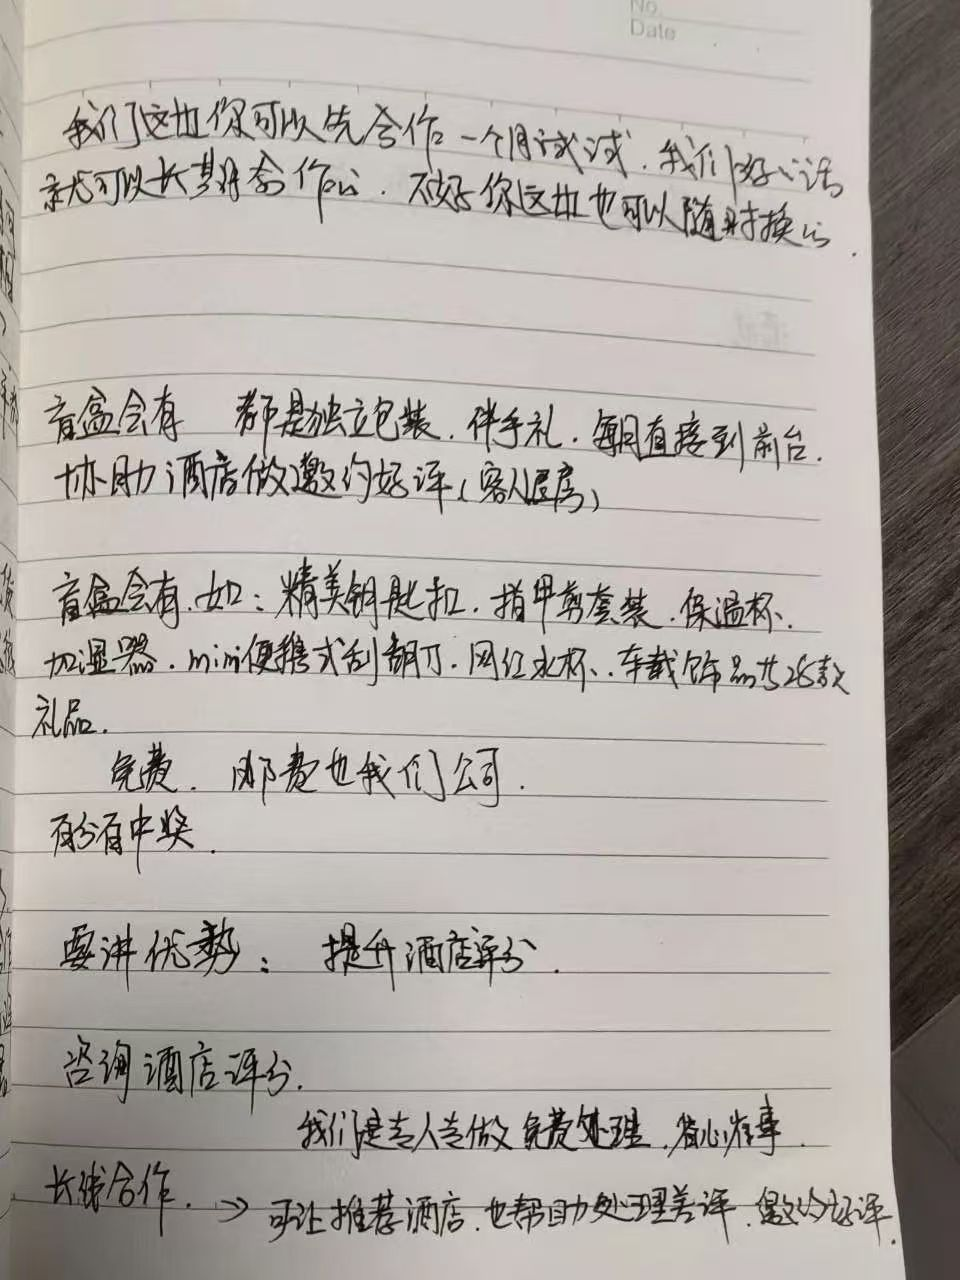 No.
Date
我们这边你可以先合作一个月试试. 我们好心话
就可以长期合作心. 不好你这边也可以随时换心.
盲盒会有 都是独立包装. 伴手礼. 每月直接到前台.
协助酒店做邀约好评(客人退房)
盲盒会有.如:精美钥匙扣. 指甲剪套装. 保温杯.
加湿器. mini便携式刮胡刀. 网红水杯. 车载饰品共26款
礼品.
免费. 邮费也我们公司.
百分百中奖.
要讲优势: 提升酒店评分.
咨询酒店评分.
我们是专人专做免费处理. 省心省事.
长线合作. → 可让推荐酒店. 也帮助处理差评. 邀约好评.